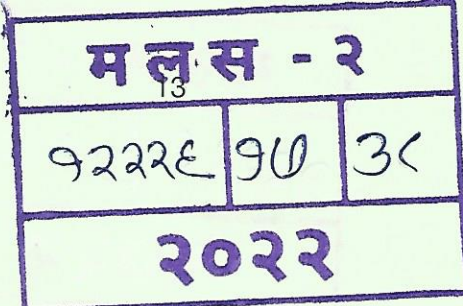 मलस - २
13
१२२२६ १७ ३८
२०२२